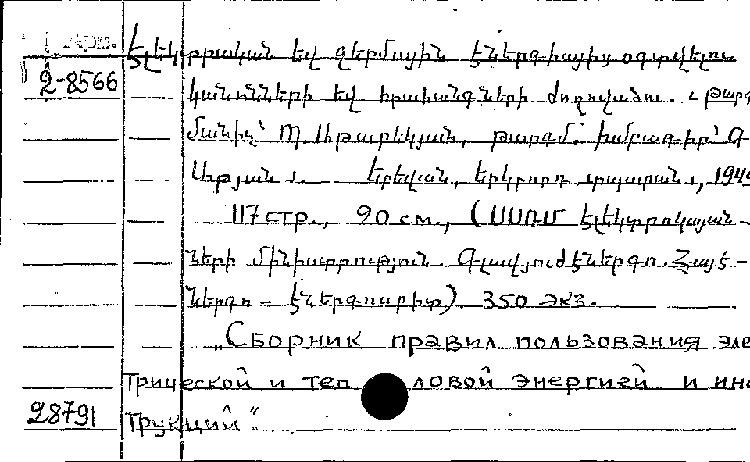 Арм. Էլեկտրական եվ ջերմային էներգիայից օգտվելու
2-8566 կանոնների եվ հրահանգների ժողովածու. Թարգ
մանիչ՝ Պ. Մթարեկյան, թարգմ. խմբագիր՝ Գ.
Աբյան Երեվան, Երկրորդ տպարան, 194
117 стр., 90 см., (ՍՍՌՄ Էլեկտրակայան-
ների մինիստրություն. Գլավյուժէներգո. Հայէ-
ներգո – էներգոսբիտ) 350 экз.
„Сборник правил пользования эле
трической и теп ловой энергией и инс
28791 трукций“